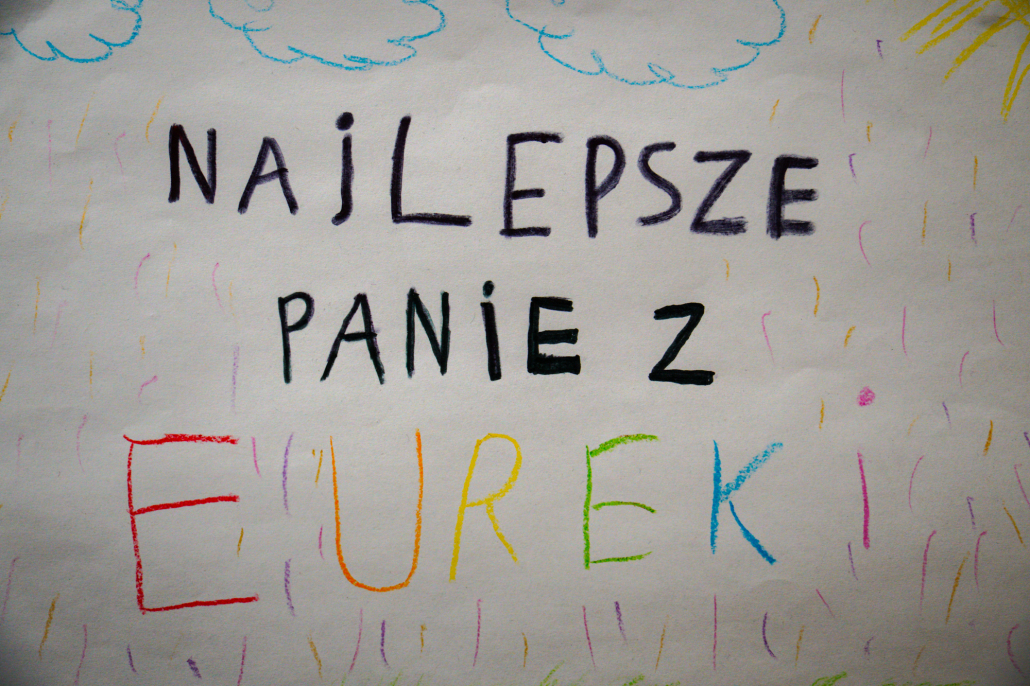 NAJLEPSZE
PANIE Z
EUREKi